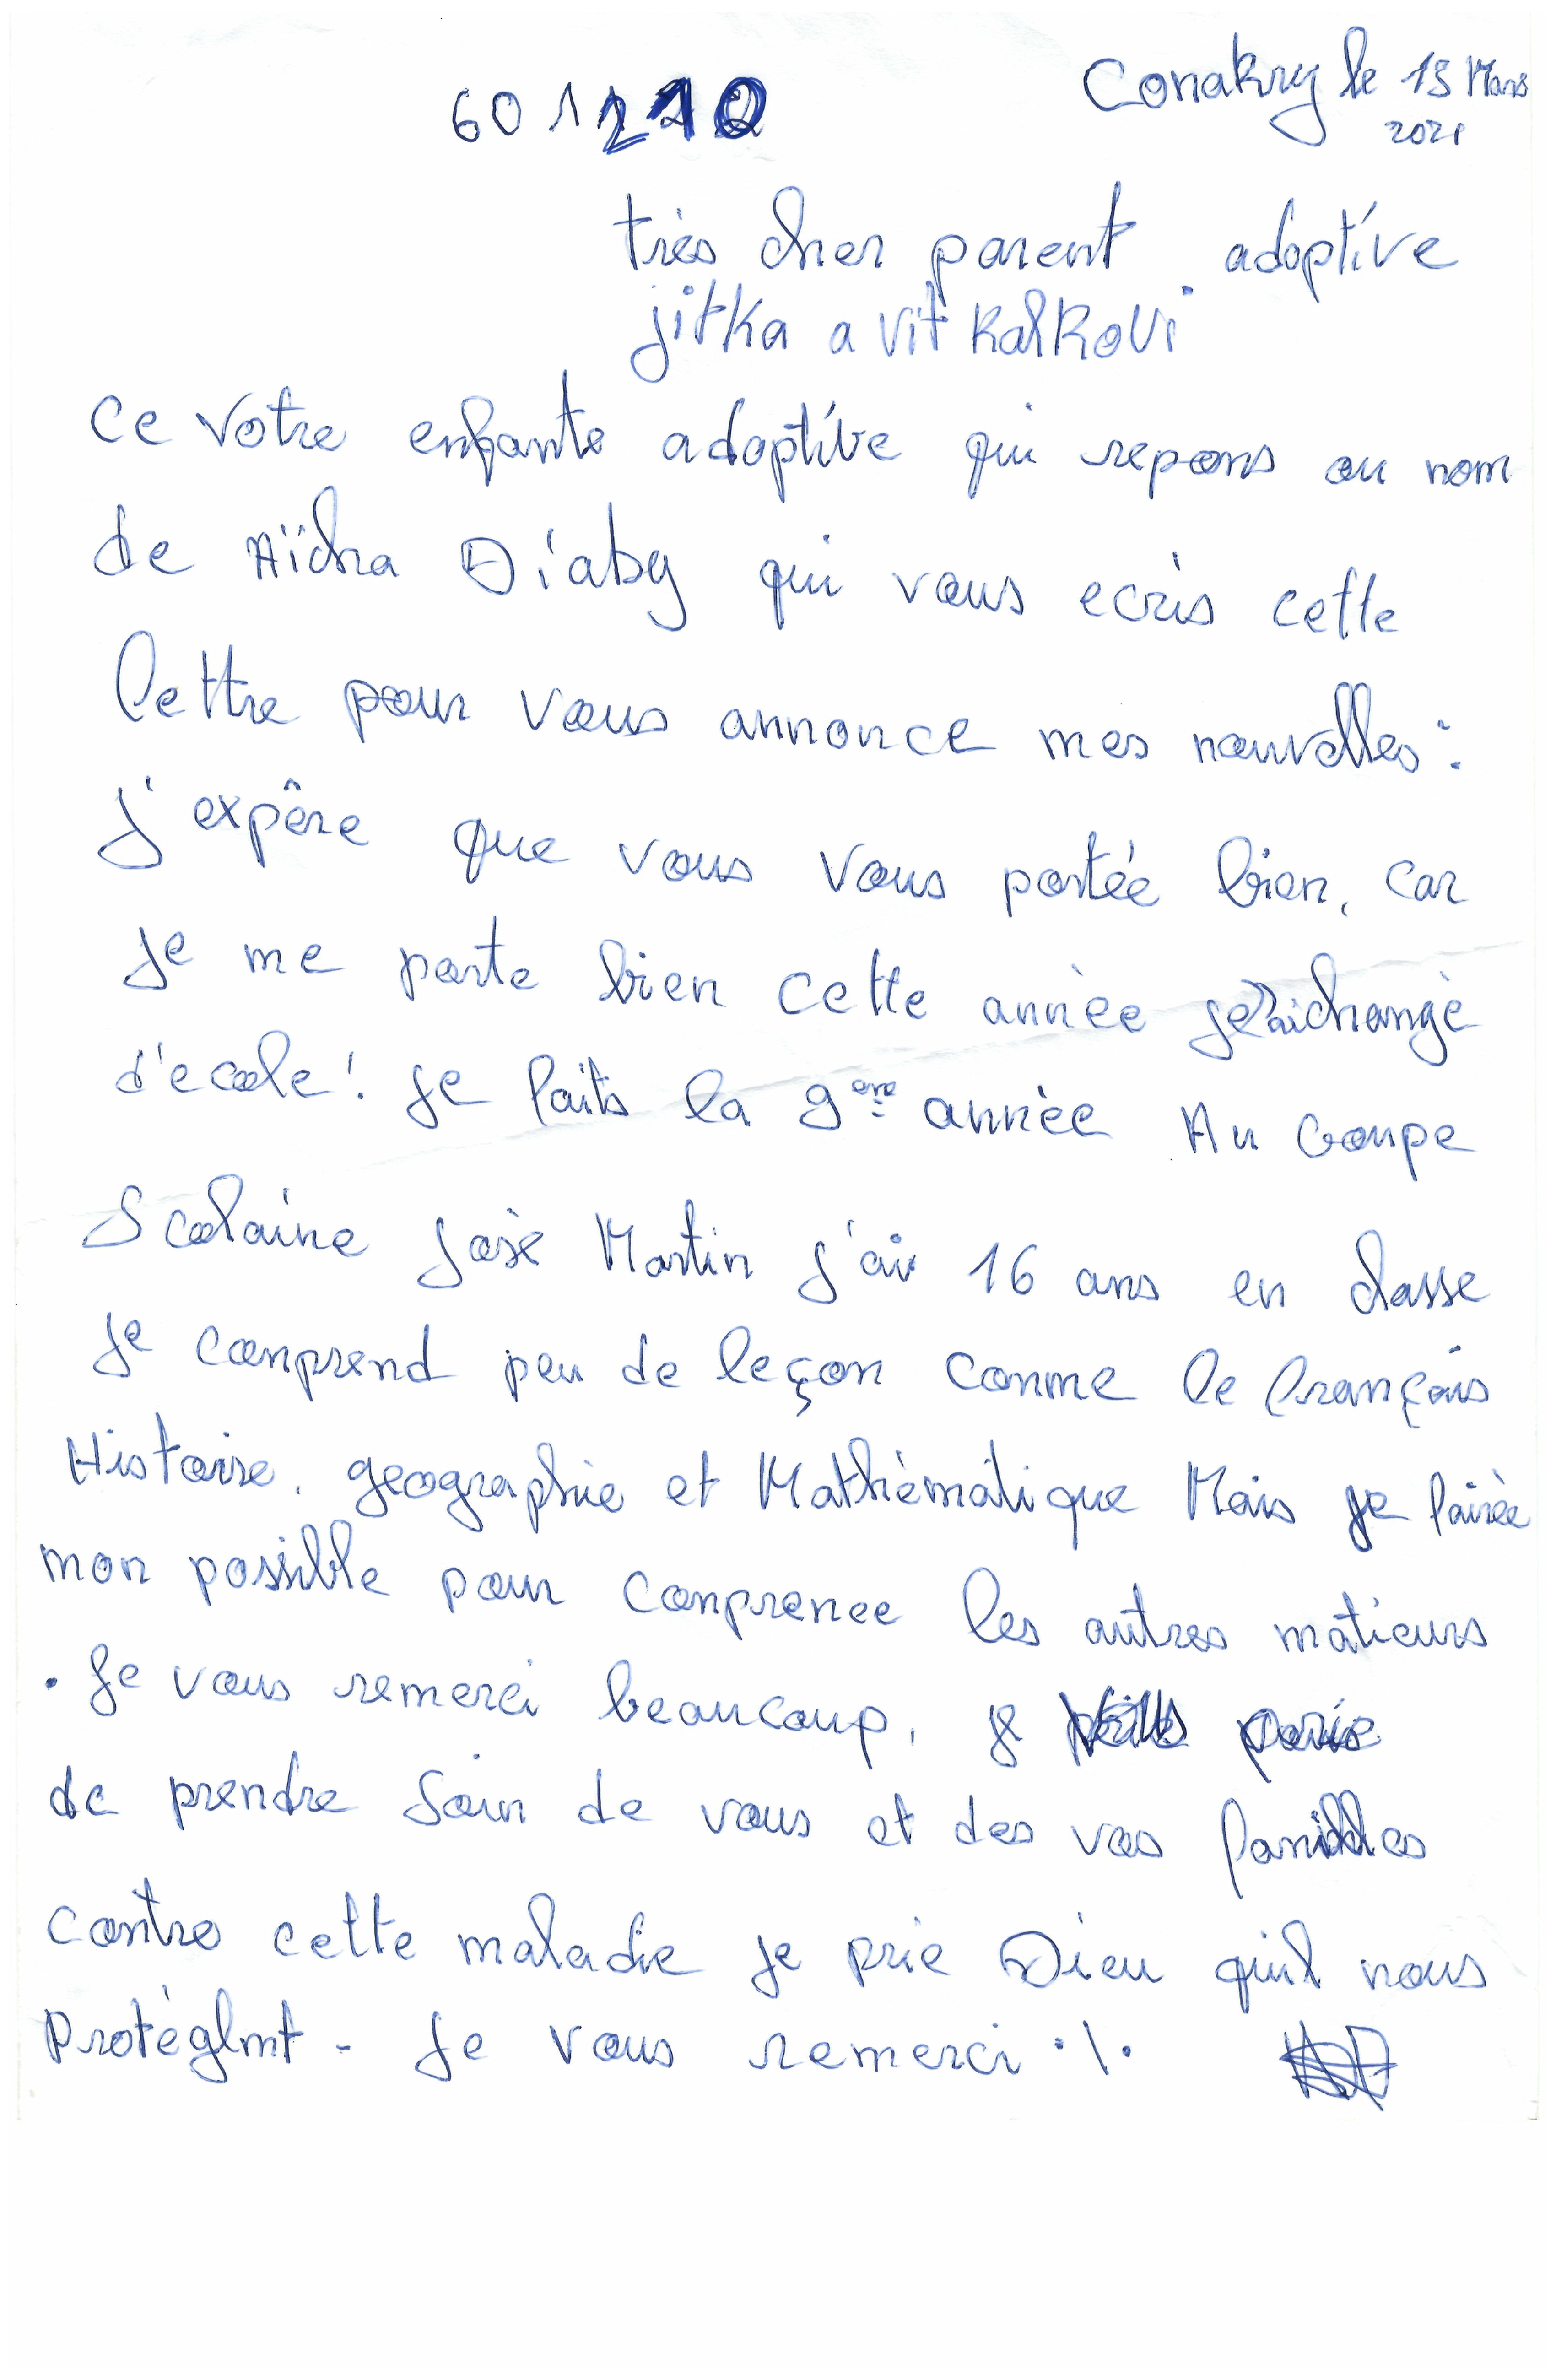 Conakry le 15 Mars
601210
2021
très cher parent adoptive
jitka a vit KalKovi
Ce votre enfante adoptive qui repons au nom
de Aïcha Diaby qui vous ecris cette
lettre pour vous annonce mes nouvelles :
J'expère que vous vous portée bien, car
Je me porte bien cette année changé
d'ecole ! Je faits la 9eme année Au Goupe
Scolaire José Martin J'ai 16 ans en classe
Je comprend peu de leçon comme le français
Histoire. geographie et Mathèmatique Mais je fairèe
mon possible pour comprenee les autres matieurs
. Je vous remerci beaucoup, je prie
de prendre soin de vous et des vos familles
contre cette maladie je prie Dieu quil nous
Je vous remerci ./.